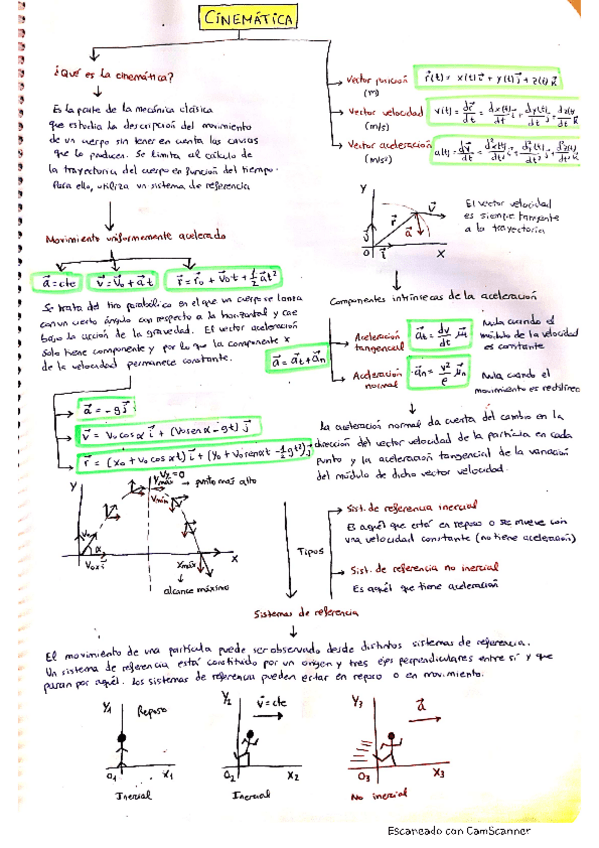 CINEMÁTICA
¿Qué es la cinemática?
Es la parte de la mecánica clásica
que estudia la descripción del movimiento
de un cuerpo sin tener en cuenta las causas
que lo producen. Se limita al cálculo de
la trayectoria del cuerpo en función del tiempo.
Para ello, utiliza un sistema de referencia
Vector posición
(m)
r⃗(t) = x(t)i⃗ + y(t)j⃗ + z(t)k⃗
Vector velocidad
(m/s)
v(t) = dr⃗/dt = dx(t)/dt i⃗ + dy(t)/dt j⃗ + dz(t)/dt k⃗
Vector aceleración
(m/s²)
a(t) = dv⃗/dt = d²x(t)/dt² i⃗ + d²y(t)/dt² j⃗ + d²z(t)/dt² k⃗
Y
v⃗
r⃗
a⃗
j⃗
O
i⃗
X
El vector velocidad
es siempre tangente
a la trayectoria
Movimiento uniformemente acelerado
a⃗ = cte
v⃗ = v⃗₀ + a⃗t
r⃗ = r⃗₀ + v⃗₀t + 1/2 a⃗t²
Se trata del tiro parabólico en el que un cuerpo se lanza
con un cierto ángulo con respecto a la horizontal y cae
bajo la acción de la gravedad. El vector aceleración
solo tiene componente y por lo que la componente x
de la velocidad permanece constante.
Componentes intrínsecas de la aceleración
a⃗ = a⃗t + a⃗n
Aceleración
tangencial
a⃗t = dv/dt μ⃗t
Nula cuando el
módulo de la velocidad
es constante
Aceleración
normal
a⃗n = v²/ρ μ⃗n
Nula cuando el
movimiento es rectilíneo
a⃗ = -gj⃗
v⃗ = v₀cosα i⃗ + (v₀senα - gt) j⃗
r⃗ = (x₀ + v₀cosαt) i⃗ + (y₀ + v₀senαt - 1/2 gt²) j⃗
La aceleración normal da cuenta del cambio en la
dirección del vector velocidad de la partícula en cada
punto y la aceleración tangencial de la variación
del módulo de dicho vector velocidad.
Y
Vy=0
Ymáx → punto más alto
Vmín
V₀
α
V₀x i⃗
Xmáx
X
alcance máximo
Tipos
Sist. de referencia inercial
Es aquél que está en reposo o se mueve con
una velocidad constante (no tiene aceleración)
Sist. de referencia no inercial
Es aquél que tiene aceleración
Sistemas de referencia
El movimiento de una partícula puede ser observado desde distintos sistemas de referencia.
Un sistema de referencia está constituido por un origen y tres ejes perpendiculares entre sí y que
pasan por aquél. Los sistemas de referencia pueden estar en reposo o en movimiento.
Y₁
Reposo
O₁
X₁
Inercial
Y₂
v⃗ = cte
O₂
X₂
Inercial
Y₃
a⃗
O₃
X₃
No inercial
Escaneado con CamScanner